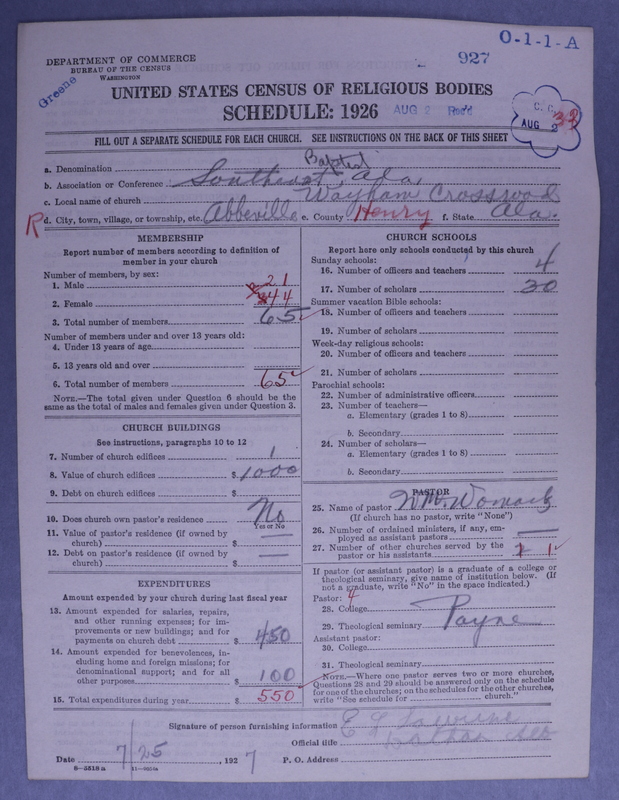 O-1-1-A
927
DEPARTMENT OF COMMERCE
BUREAU OF THE CENSUS
WASHINGTON
Greene
UNITED STATES CENSUS OF RELIGIOUS BODIES
SCHEDULE: 1926
AUG 2 Rec'd
C. C.
AUG 2
33
FILL OUT A SEPARATE SCHEDULE FOR EACH CHURCH. SEE INSTRUCTIONS ON THE BACK OF THIS SHEET
a. Denomination Baptist
b. Association or Conference Southeast, Ala,
c. Local name of church Crossroad
R
d. City, town, village, or township, etc. Abbeville e. County Henry f. State Ala.
MEMBERSHIP
Report number of members according to definition of
member in your church
Number of members, by sex:
1. Male 21
2. Female 44
3. Total number of members 65
Number of members under and over 13 years old:
4. Under 13 years of age
5. 13 years old and over
6. Total number of members 65
NOTE.—The total given under Question 6 should be the
same as the total of males and females given under Question 3.
CHURCH BUILDINGS
See instructions, paragraphs 10 to 12
7. Number of church edifices 1
8. Value of church edifices $ 1000
9. Debt on church edifices $
10. Does church own pastor's residence No
Yes or No
11. Value of pastor's residence (if owned by
church) $ —
12. Debt on pastor's residence (if owned by
church) $ —
EXPENDITURES
Amount expended by your church during last fiscal year
13. Amount expended for salaries, repairs,
and other running expenses; for im-
provements or new buildings; and for
payments on church debt $ 450
14. Amount expended for benevolences, in-
cluding home and foreign missions; for
denominational support; and for all
other purposes $ 100
15. Total expenditures during year $ 550
CHURCH SCHOOLS
Report here only schools conducted by this church
Sunday schools:
16. Number of officers and teachers 4
17. Number of scholars 30
Summer vacation Bible schools:
18. Number of officers and teachers
19. Number of scholars
Week-day religious schools:
20. Number of officers and teachers
21. Number of scholars
Parochial schools:
22. Number of administrative officers
23. Number of teachers—
a. Elementary (grades 1 to 8)
b. Secondary
24. Number of scholars—
a. Elementary (grades 1 to 8)
b. Secondary
PASTOR
25. Name of pastor
(If church has no pastor, write "None")
26. Number of ordained ministers, if any, em-
ployed as assistant pastors —
27. Number of other churches served by the
pastor or his assistants 1
If pastor (or assistant pastor) is a graduate of a college or
theological seminary, give name of institution below. (If
not a graduate, write "No" in the space indicated.)
Pastor: 4
28. College
29. Theological seminary Payne
Assistant pastor:
30. College
31. Theological seminary
NOTE.—Where one pastor serves two or more churches,
Questions 28 and 29 should be answered only on the schedule
for one of the churches; on the schedules for the other churches,
write "See schedule for church."
Signature of person furnishing information
Official title
Date 7/25, 1927 P. O. Address
8—5518 a 11—9051a